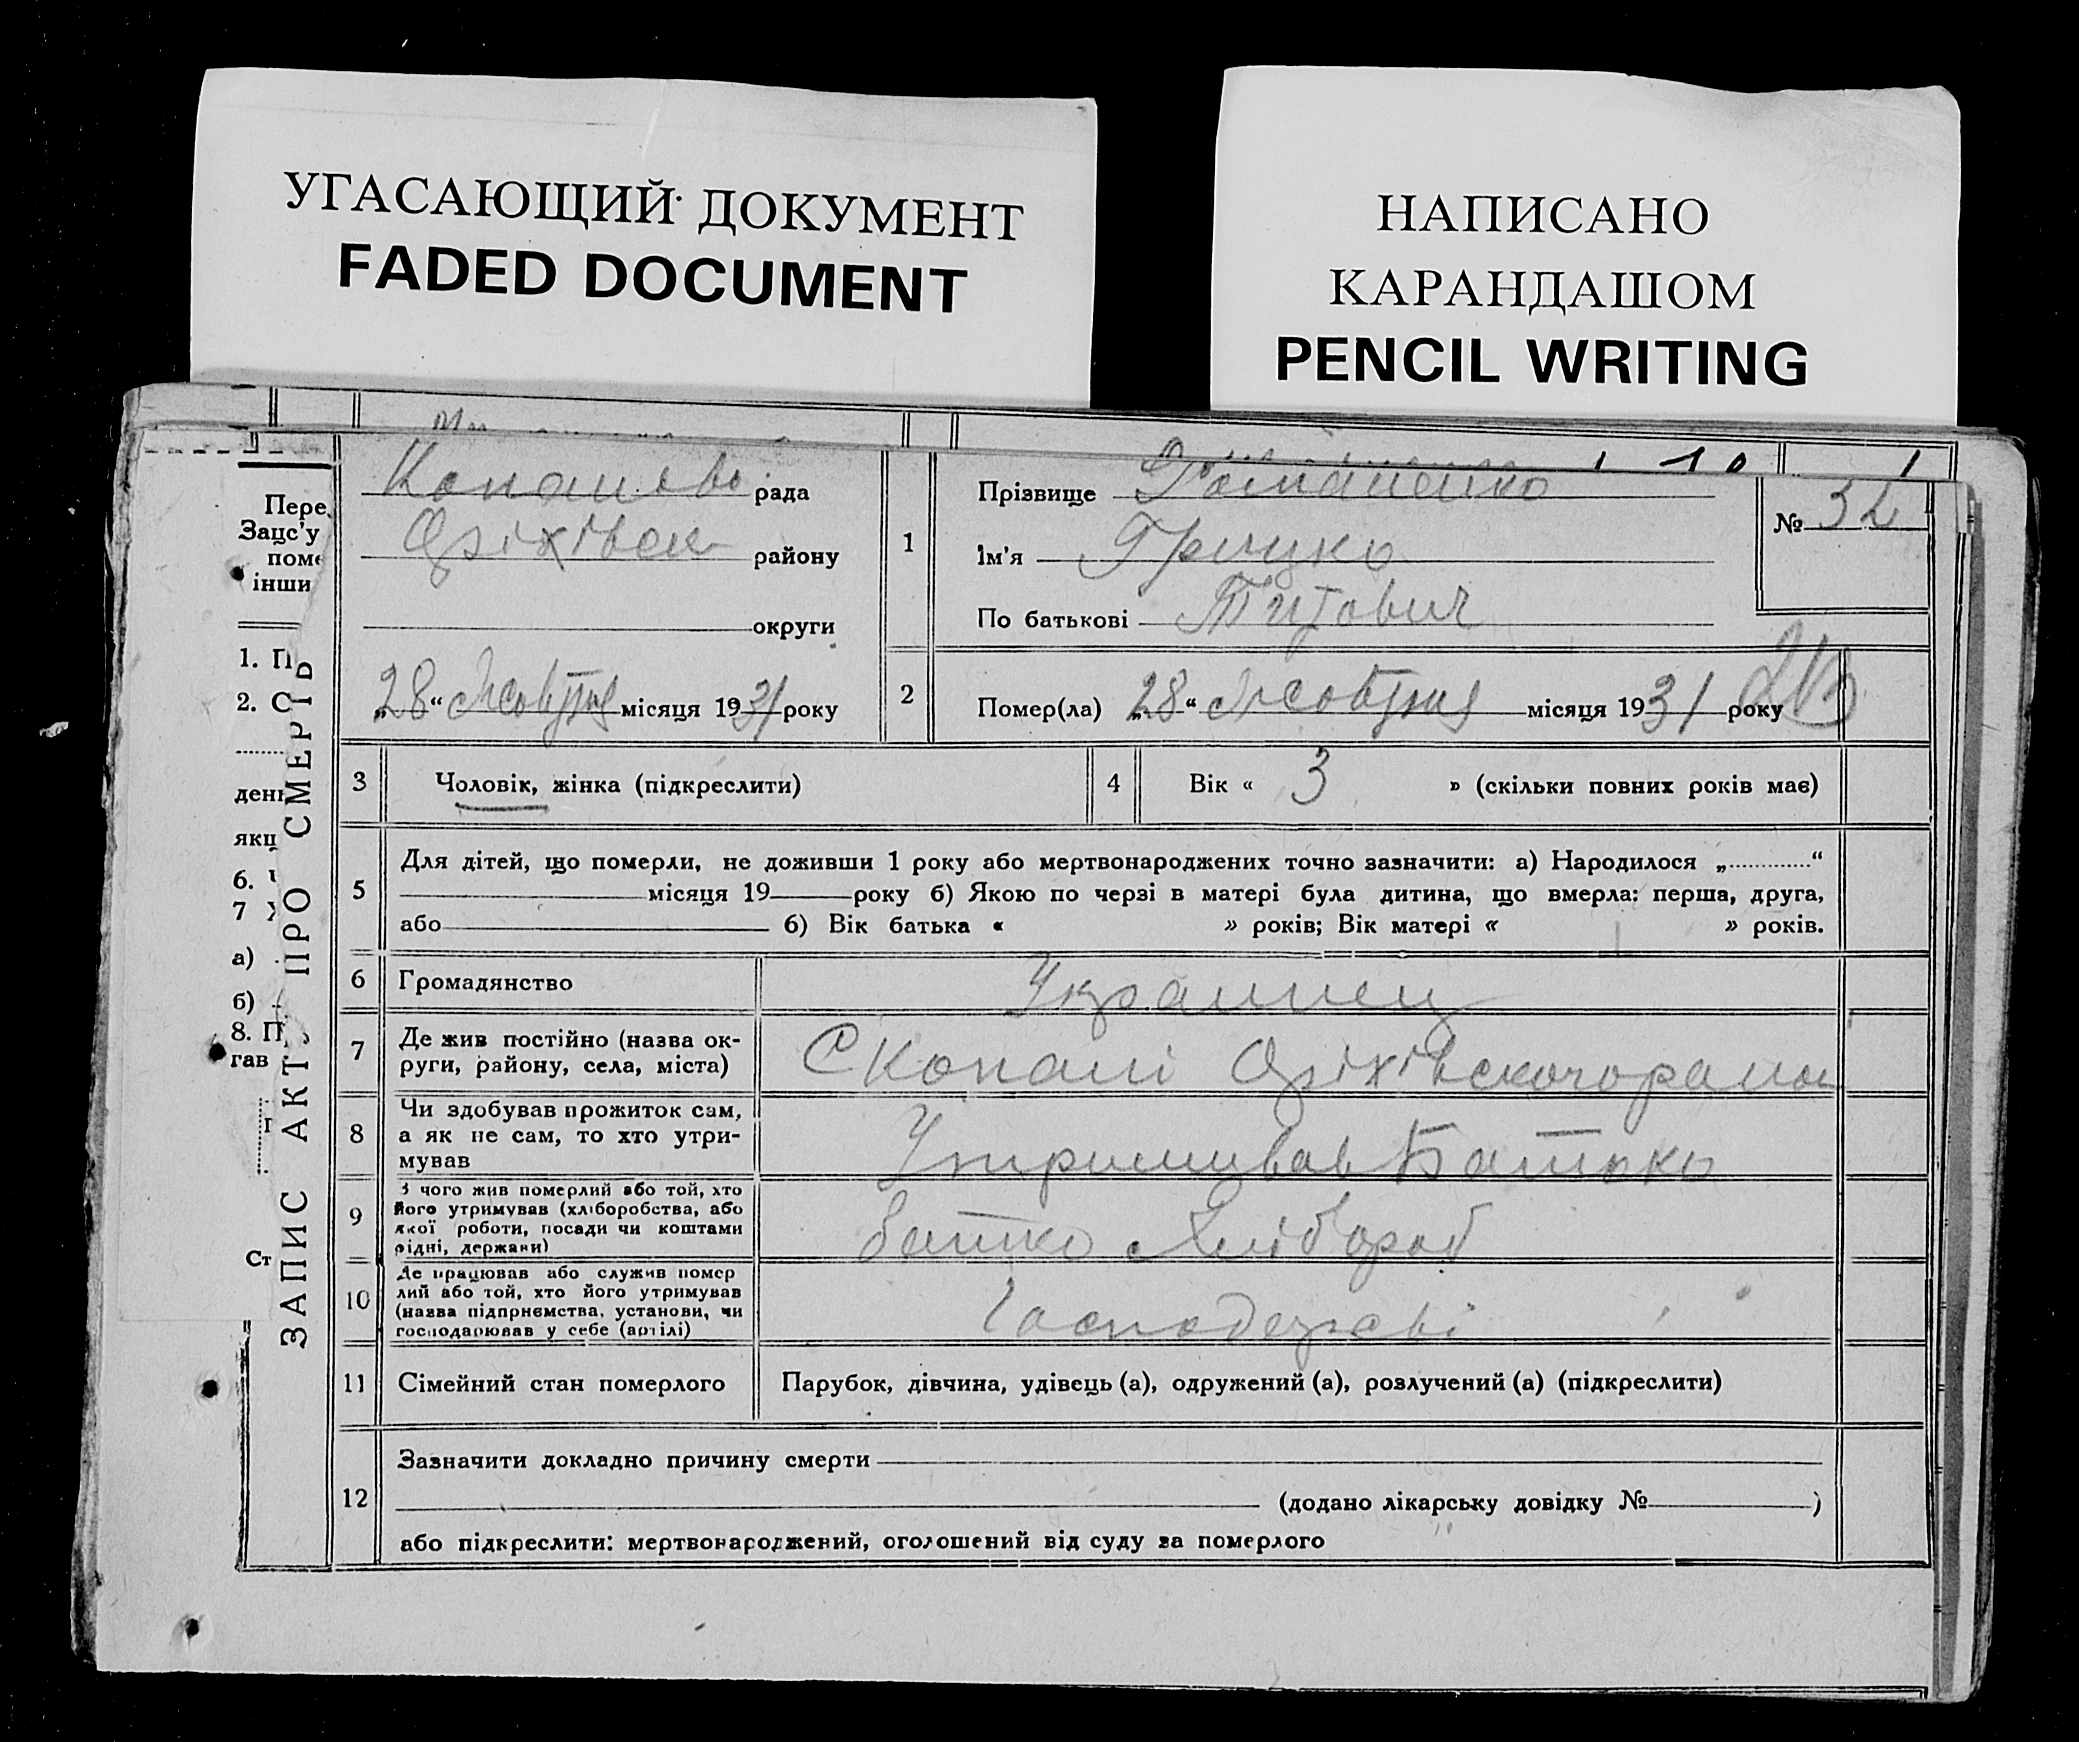 УГАСАЮЩИЙ ДОКУМЕНТ
FADED DOCUMENT
НАПИСАНО
КАРАНДАШОМ
PENCIL WRITING
Пере
Зацс'у
поме
інши
1. П
2. С
ден
якщ
6.
7
а)
б)
8. П
гав
Ст
ЗАПИС АКТ ПРО СМЕРТЬ
рада
Оріхівськ району
округи
„28“ Жовтня місяця 1931 року
1
Прізвище Романенко
Ім'я Грицко
По батькові Титович
№ 32
2
Помер(ла) „28“ Жовтня місяця 1931 року
3
Чоловік, жінка (підкреслити)
4
Вік « 3 » (скільки повних років має)
5
Для дітей, що померли, не доживши 1 року або мертвонароджених точно зазначити: а) Народилося „............“
місяця 19 року б) Якою по черзі в матері була дитина, що вмерла: перша, друга,
або б) Вік батька « » років; Вік матері « » років.
6
Громадянство
Украинец
7
Де жив постійно (назва ок-
руги, району, села, міста)
С Копані Оріхівского
8
Чи здобував прожиток сам,
а як не сам, то хто утри-
мував
Утримував Батько
9
З чого жив померлий або той, хто
його утримував (хліборобства, або
якої роботи, посади чи коштами
рідні, держави)
батко Хлібороб
10
Де працював або служив помер
лий або той, хто його утримував
(назва підприємства, установи, чи
господарював у себе (артілі)
11
Сімейний стан померлого
Парубок, дівчина, удівець (а), одружений (а), розлучений (а) (підкреслити)
12
Зазначити докладно причину смерти
(додано лікарську довідку № )
або підкреслити: мертвонароджений, оголошений від суду за померлого